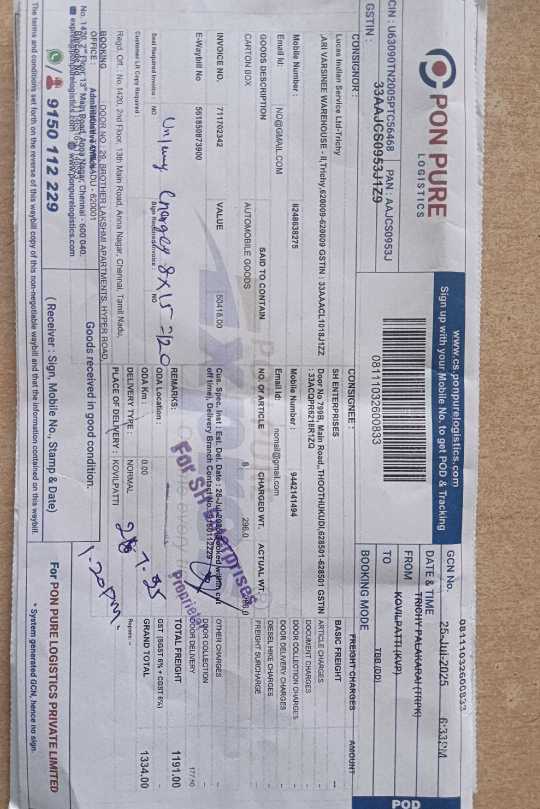 PON PURE
LOGISTICS
CIN : U63090TN2005PTC56468 PAN : AAJCS0953J
GSTIN : 33AAJCS0953J1Z9
www.cs.ponpurelogistics.com
Sign up with your Mobile No. to get POD & Tracking
08111032600833
GCN No. 08111032600833
DATE & TIME 25-Jul-2025 6:33PM
FROM TRICHY PALAKARAI (TRPK)
TO KOVILPATTI (KVP)
BOOKING MODE TBB (DD)
POD
CONSIGNOR :
Lucas Indian Service Ltd-Trichy
ARI VARSINEE WAREHOUSE - II,Trichy,620009-620009 GSTIN : 33AAACL1018J1ZZ
Mobile Number :
Email Id: NO@GMAIL.COM
CONSIGNEE :
SH ENTERPRISES
Door No 799B, Main Road,, THOOTHUKUDI,628501-628501 GSTIN
Mobile Number : 9442141494
Email Id: nomail@gmail.com
GOODS DESCRIPTION SAID TO CONTAIN NO. OF ARTICLE CHARGED WT. ACTUAL WT.
CARTON BOX AUTOMOBILE GOODS 8 296.0
INVOICE NO. 711702342 VALUE 50418.00
E-Waybill No 561850873900
Seal Required Invoice : NO
Sign Required Invoice NO
Customer LI Copy Required
Un/Lung Charges 8X15=120
REMARKS:
ODA Location:
ODA Km : 0.00
DELIVERY TYPE : NORMAL
PLACE OF DELIVERY : KOVILPATTI
For SH Enterprises
Proprietor
1.20pm
FREIGHT CHARGES AMOUNT
BASIC FREIGHT
ARTICLE CHARGES
DOCUMENT CHARGES
DOOR COLLECTION CHARGES
DOOR DELIVERY CHARGES
DIESEL HIKE CHARGES
FREIGHT SURCHARGE
OTHER CHARGES
DOOR COLLECTION
DOOR DELIVERY
TOTAL FREIGHT 1191.00
GST: (SGST 6% + CGST 6%)
GRAND TOTAL 1334.00
Rupees: -
Regd. Off. : No. 1420, 2nd Floor, 13th Main Road, Anna Nagar, Chennai, Tamil Nadu,
BOOKING OFFICE : DOOR NO : 29, BROTHER LAKSHMI APARTMENTS, HYPER ROAD,
No. 1420, 2nd Floor, 13th Main Road, Anna Nagar, Chennai - 600 040.
9150 112 229
Goods received in good condition.
( Receiver : Sign, Mobile No., Stamp & Date)
For PON PURE LOGISTICS PRIVATE LIMITED
* System generated GCN, hence no sign.
The terms and conditions set forth on the reverse of waybill copy of this non-negotiable waybill and that the information contained on this waybill.